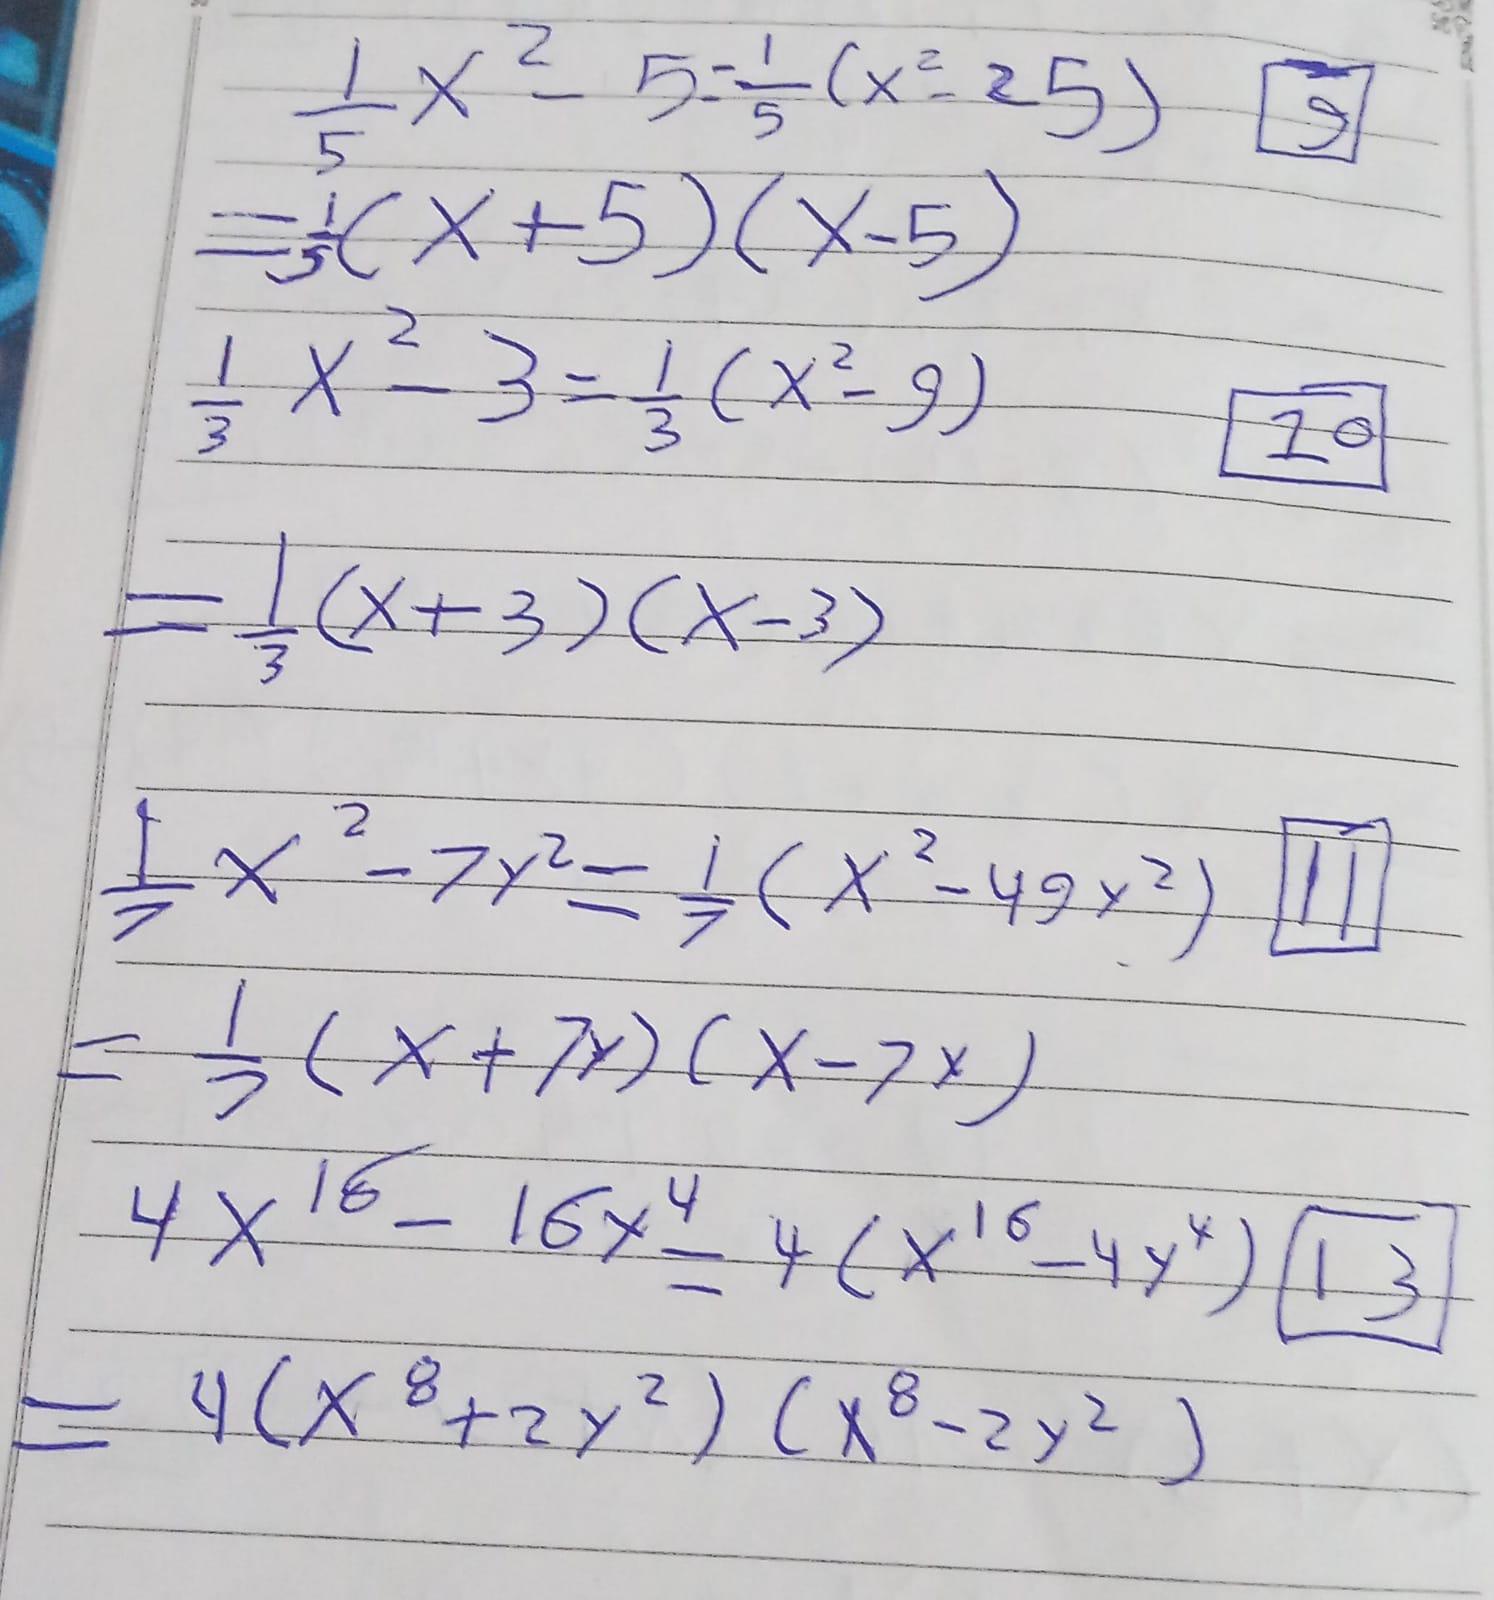 1/5 x² - 5 = 1/5 (x² - 25) 9
= 1/5 (x + 5)(x - 5)
1/3 x² - 3 = 1/3 (x² - 9) 10
= 1/3 (x + 3)(x - 3)
1/7 x² - 7y² = 1/7 (x² - 49y²) 11
= 1/7 (x + 7y)(x - 7x)
4x¹⁶ - 16x⁴ = 4(x¹⁶ - 4y⁴) 13
= 4(x⁸ + 2y²)(x⁸ - 2y²)